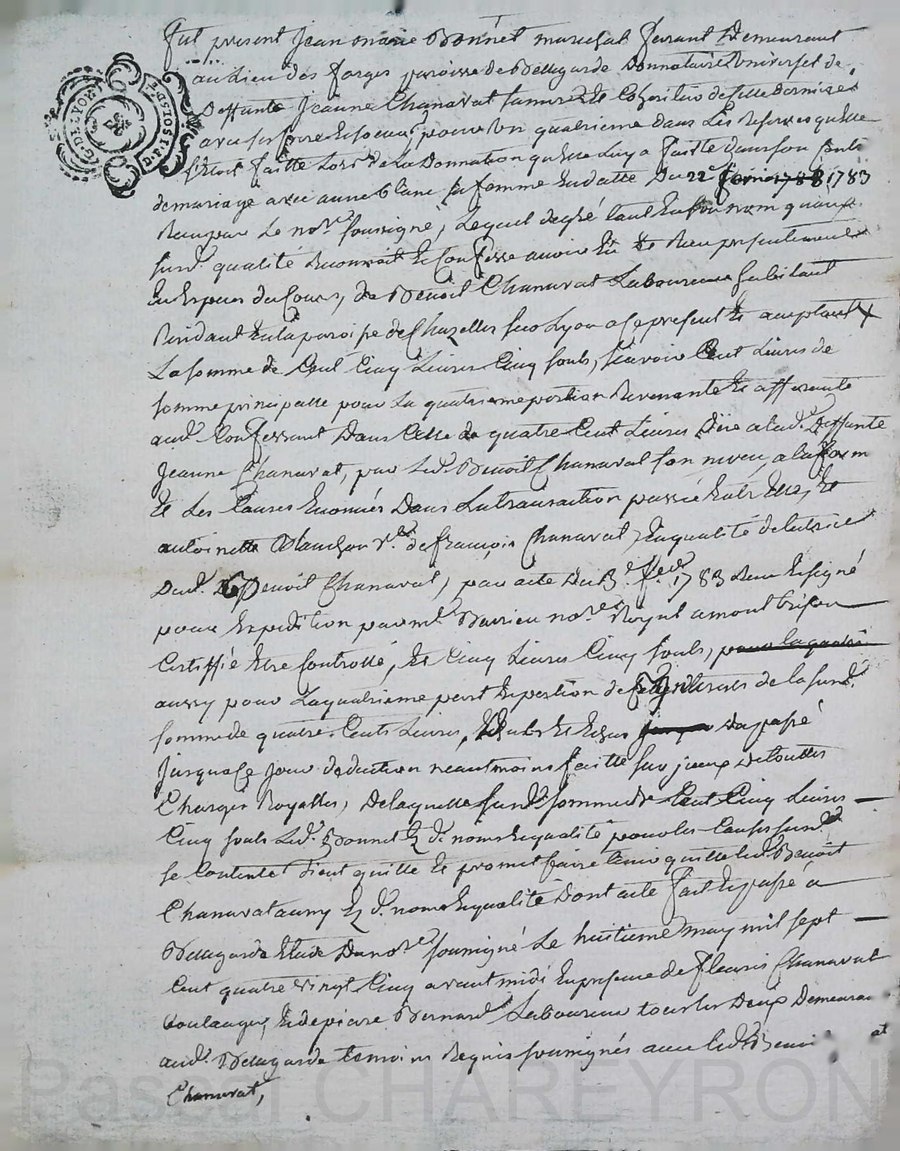 G. DE LYON
DEUX SOLS P. P.
Fut présent Jean marie Bonnet marechal ferant Demeurant
au Lieu des forges paroisse de Bellegarde Donnataire Universel de
Deffunte Jeanne Chanavat femme
avec son frere pour Un quatrieme dans Les reserves quelle
s'étoit faitte Lors de La Donnation quelle Luy a faitte dans son Cont.
de mariage avec anne blanc sa femme En datte Du 22 1783
Reçu par Le no.re soussigné, Lequel de gré tant En son nom quaux
sus.d. qualité Reconnait Et Confesse avoir Eu Et Reçu presentement
En Especes du Cours, de Benoit Chanavat Laboureur habitant
Residant En la paroisse de Chazelles sur Lyon a ce present Et acceptant
La somme de Cent Cinq Livres Cinq souls, scavoir Cent Livres de
somme principalle pour La quatrieme portion Revenante Et afferante
aud. Confessant Dans Celle de quatre Cent Livres Düe a lad. Deffunte
Jeanne Chanavat, par Led. Benoit Chanavat son neveu, a la form
Et Les Causes Enoncées Dans La transaction passée Entre Elle, Et
antoinette v.e de françois Chanavat, En qualité de tutrice
Dud. Benoit Chanavat, par acte Du 1783 Reçu Et signé
pour Expedition par m.e Barrieu no.re Royal a montbrison
Certiffié Etre Controllé, Et Cinq Livres Cinq souls, pour la quatri
aussy pour La quatrieme part Et portion des interets de la sus.d.
somme de quatre Cents Livres, Echuts Et Echus du passé
Jusqua Ce Jour deduction neantmoins faitte sur jceux De touttes
Charges Royalles, De laquelle sus.d. somme de Cent Cinq Livres
Cinq souls Led. Bonnet Es d. noms Et qualité pour les Causes sus.d.
se Contente tient quitte Et promet faire tenir quitte led. Benoit
Chanavat aussy Es d. noms Et qualité Dont acte fait Et passé a
Bellegarde Etude Du no.re soussigné Le huitieme may mil sept
Cent quatre vingt Cinq avant midi En presence de fleuris Chanavat
boulanger, Et de pierre Bernard Laboureur tous les Deux Demeurant
aud. Bellegarde temoins Requis soussignés avec led. Benoit
Chanavat,
Pascal CHAREYRON